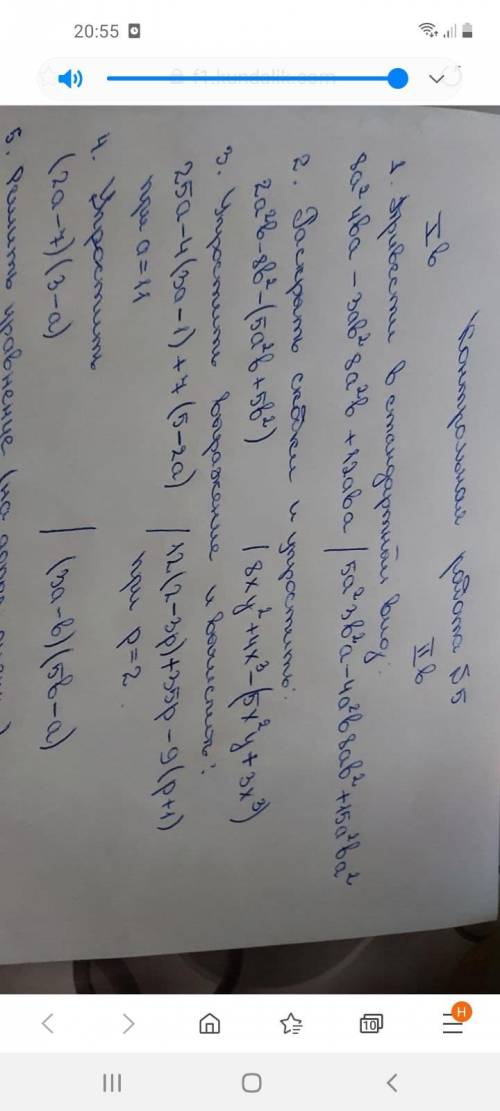 20:55
f1.kundalik.com
Контрольная работа №5
I в
II в
1. Привести в стандартный вид:
8a²4ba - 3ab²8a²b + 12aba | 5a²3b²a - 4a²b8ab² + 15a²ba²
2. Раскрыть скобки и упростить:
2a²b - 8b² - (5a²b + 5b²) | 8xy² + 4x³ - (5x²y + 3x³)
3. Упростить выражение и вычислить:
25a - 4(3a - 1) + 7(5 - 2a) | 12(2 - 3p) + 35p - 9(p + 1)
при a = 11
при p = 2
4. Упростить
(2a - 7)(3 - a) | (3a - b)(5b - a)
5. Решить уравнение
10
H